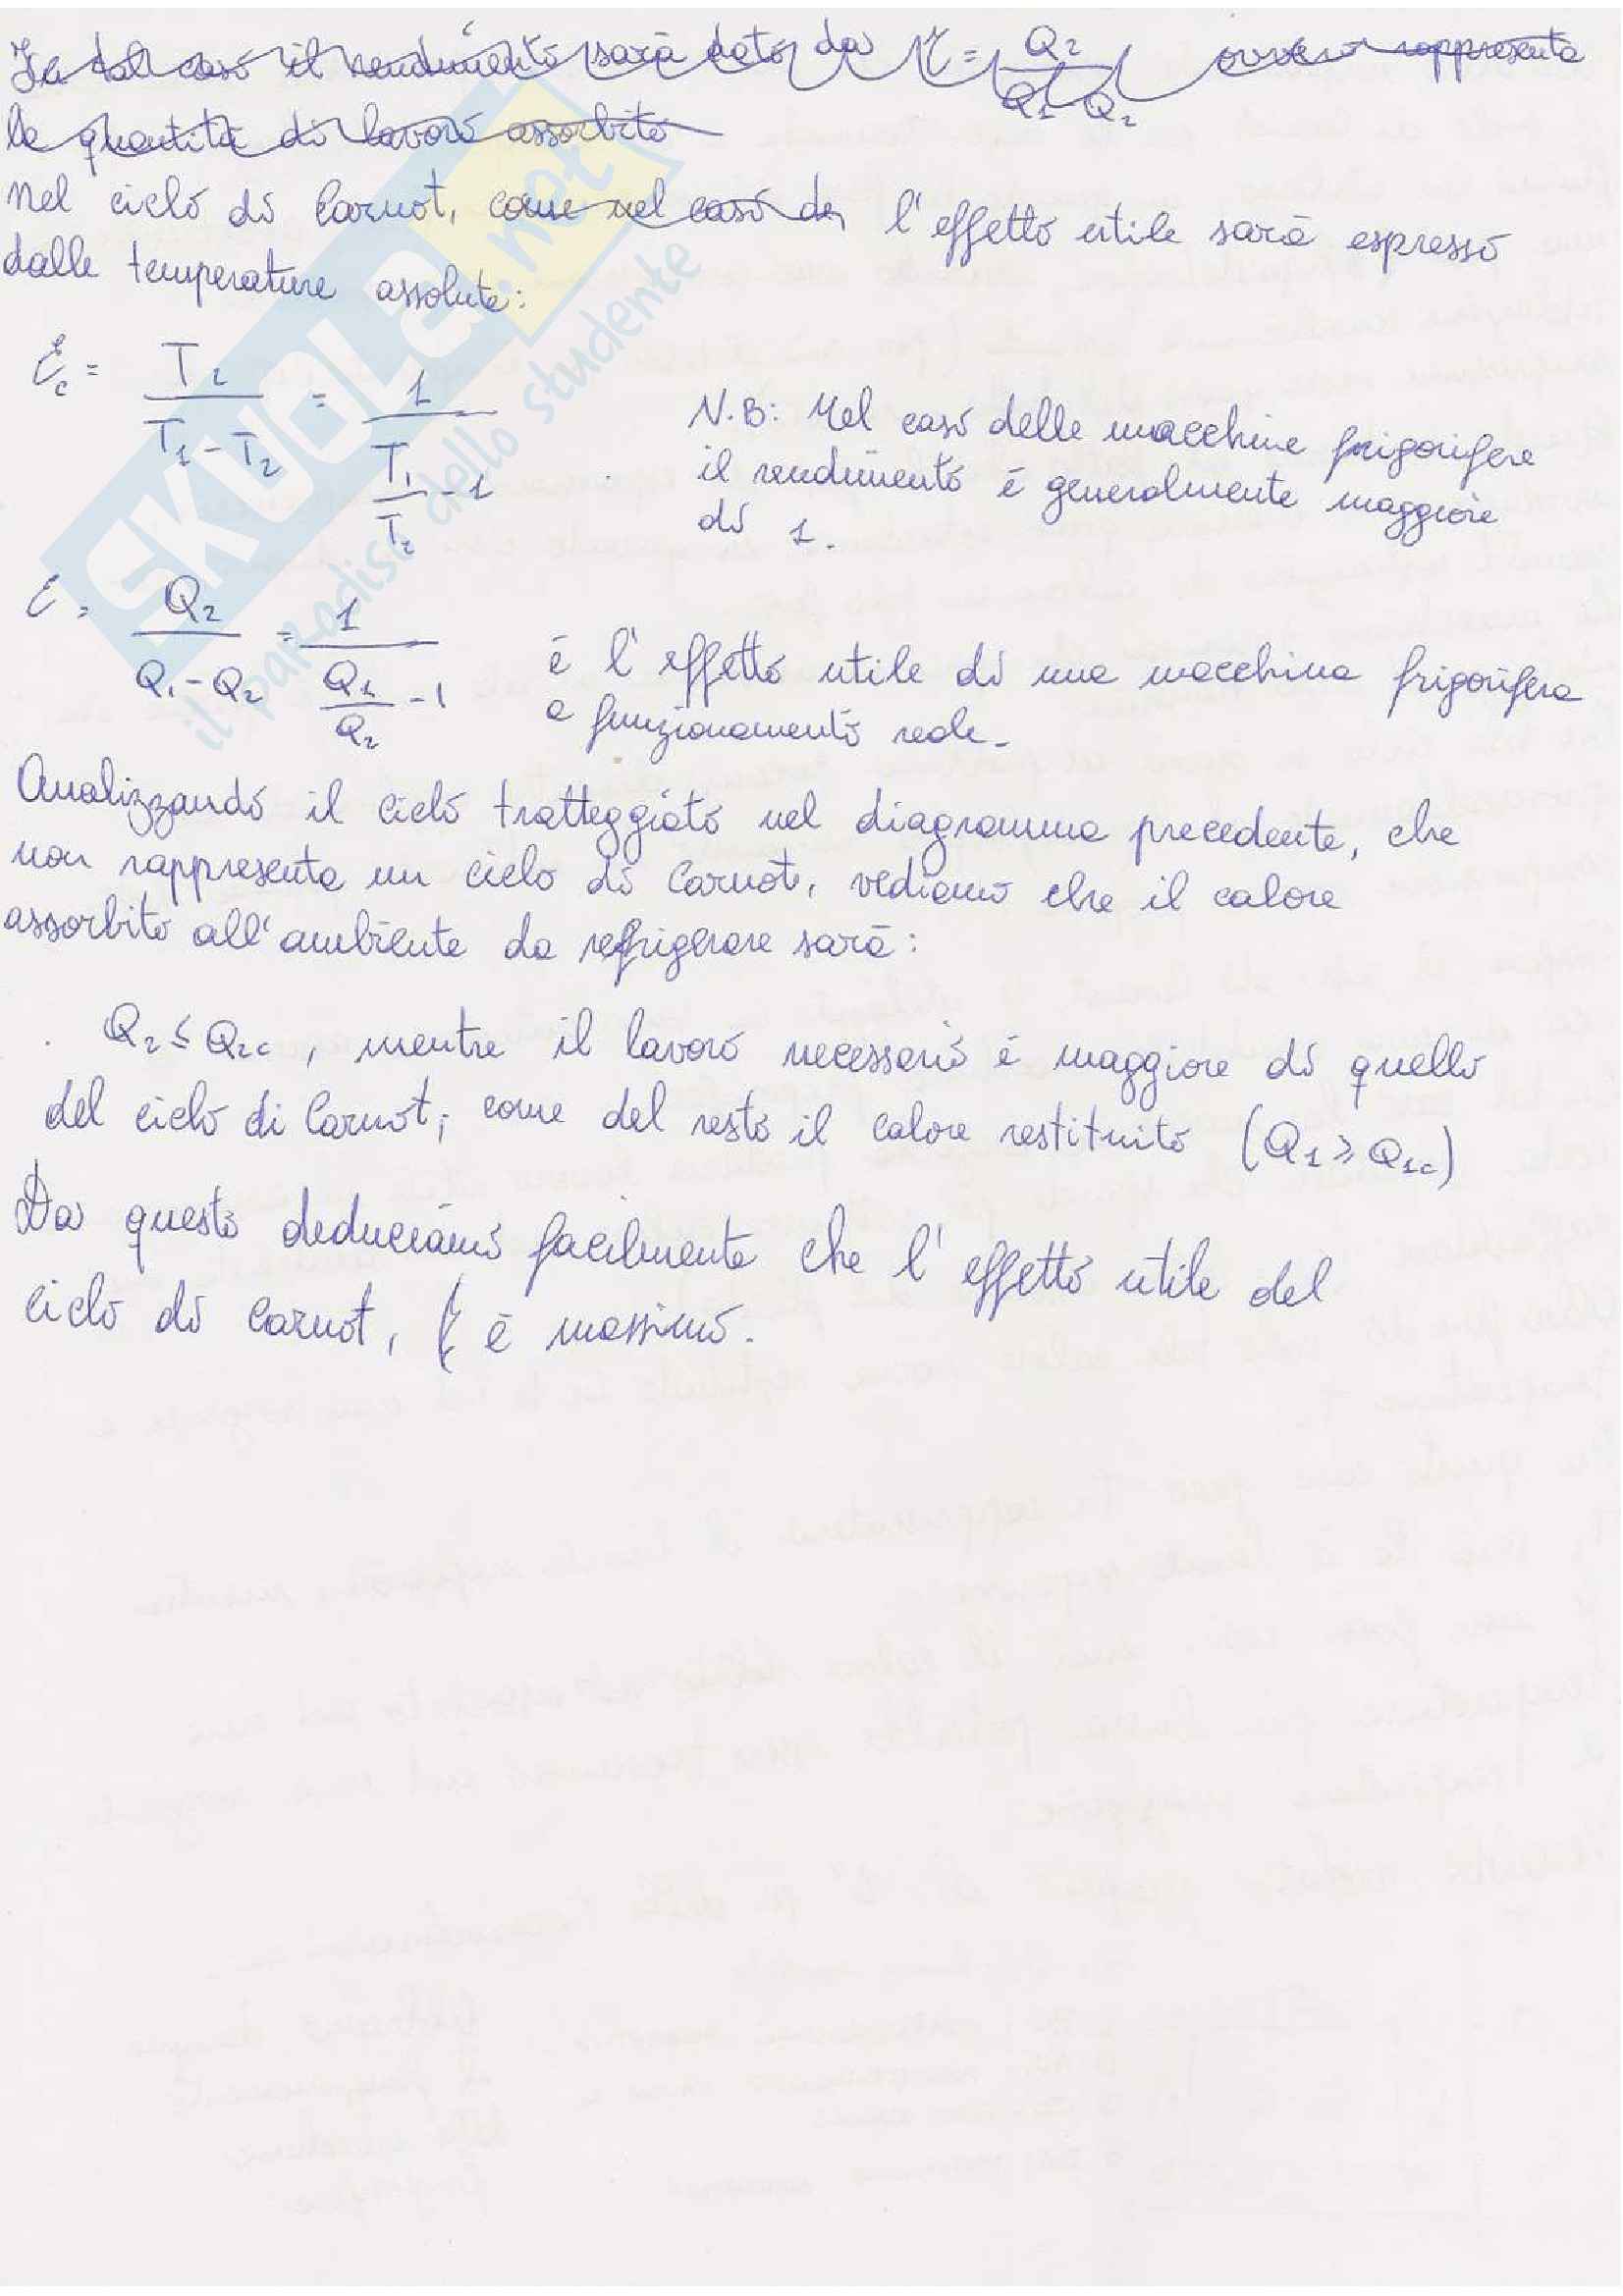 In tal caso il rendimento sarà dato da η = Q2 / (Q1 - Q2) ovvero rappresenta
la quantità di lavoro assorbito
Nel ciclo di Carnot, come nel caso de l'effetto utile sarà espresso
dalle temperature assolute:
εc = T2 / (T1 - T2) = 1 / (T1/T2 - 1)
N.B: Nel caso delle macchine frigorifere
il rendimento è generalmente maggiore
di 1.
ε = Q2 / (Q1 - Q2) = 1 / (Q1/Q2 - 1)
è l'effetto utile di una macchina frigorifera
a funzionamento reale.
Analizzando il ciclo tratteggiato nel diagramma precedente, che
non rappresenta un ciclo di Carnot, vediamo che il calore
assorbito all'ambiente da refrigerare sarà:
Q2 ≤ Q2c, mentre il lavoro necessario è maggiore di quello
del ciclo di Carnot; come del resto il calore restituito (Q1 ≥ Q1c)
Da questo deduciamo facilmente che l'effetto utile del
ciclo di Carnot, è massimo.
SKUOLA.net
il paradiso dello studente